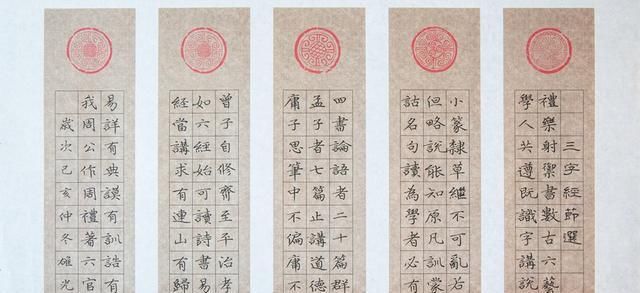 三字經節選
禮樂射禦書數古六藝
學人共遵既識字講說
小篆隸草繼不可亂若
但略說能知原凡訓蒙
詁名句讀為學者必有
四書論語者二十篇群
孟子者七篇止講道德
庸子思筆中不偏庸不
曾子自修齊至平治孝
如六經始可讀詩書易
經當講求有連山有歸
易詳有典謨有訓誥有
我周公作周禮著六官
歲次己亥仲冬雄光